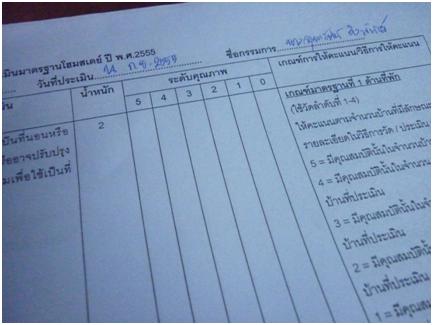 เมินมาตรฐานโฮมสเตย์ ปี พ.ศ.2555
วันที่ประเมิน ก.ย. 2555 ชื่อกรรมการ
น้ำหนัก ระดับคุณภาพ เกณฑ์การให้คะแนนวิธีการให้คะแนน
5 4 3 2 1 0
เกณฑ์มาตรฐานที่ 1 ด้านที่พัก
(ใช้วัดลำดับที่ 1-4)
เป็นที่นอนหรือ 2 ให้คะแนนตามจำนวนบ้านที่มีลักษณะ
รืออาจปรับปรุง รายละเอียดในวิธีการวัด / ประเมิน
มเพื่อใช้เป็นที่ 5 = มีคุณสมบัตินั้นในจำนวน
4 = มีคุณสมบัตินั้นในจำนวน
บ้านที่ประเมิน
3 = มีคุณสมบัตินั้นในจำ
บ้านที่ประเมิน
2 = มีคุณสมบัตินั้น
บ้านที่ประเมิน
1 = มีคุณสม